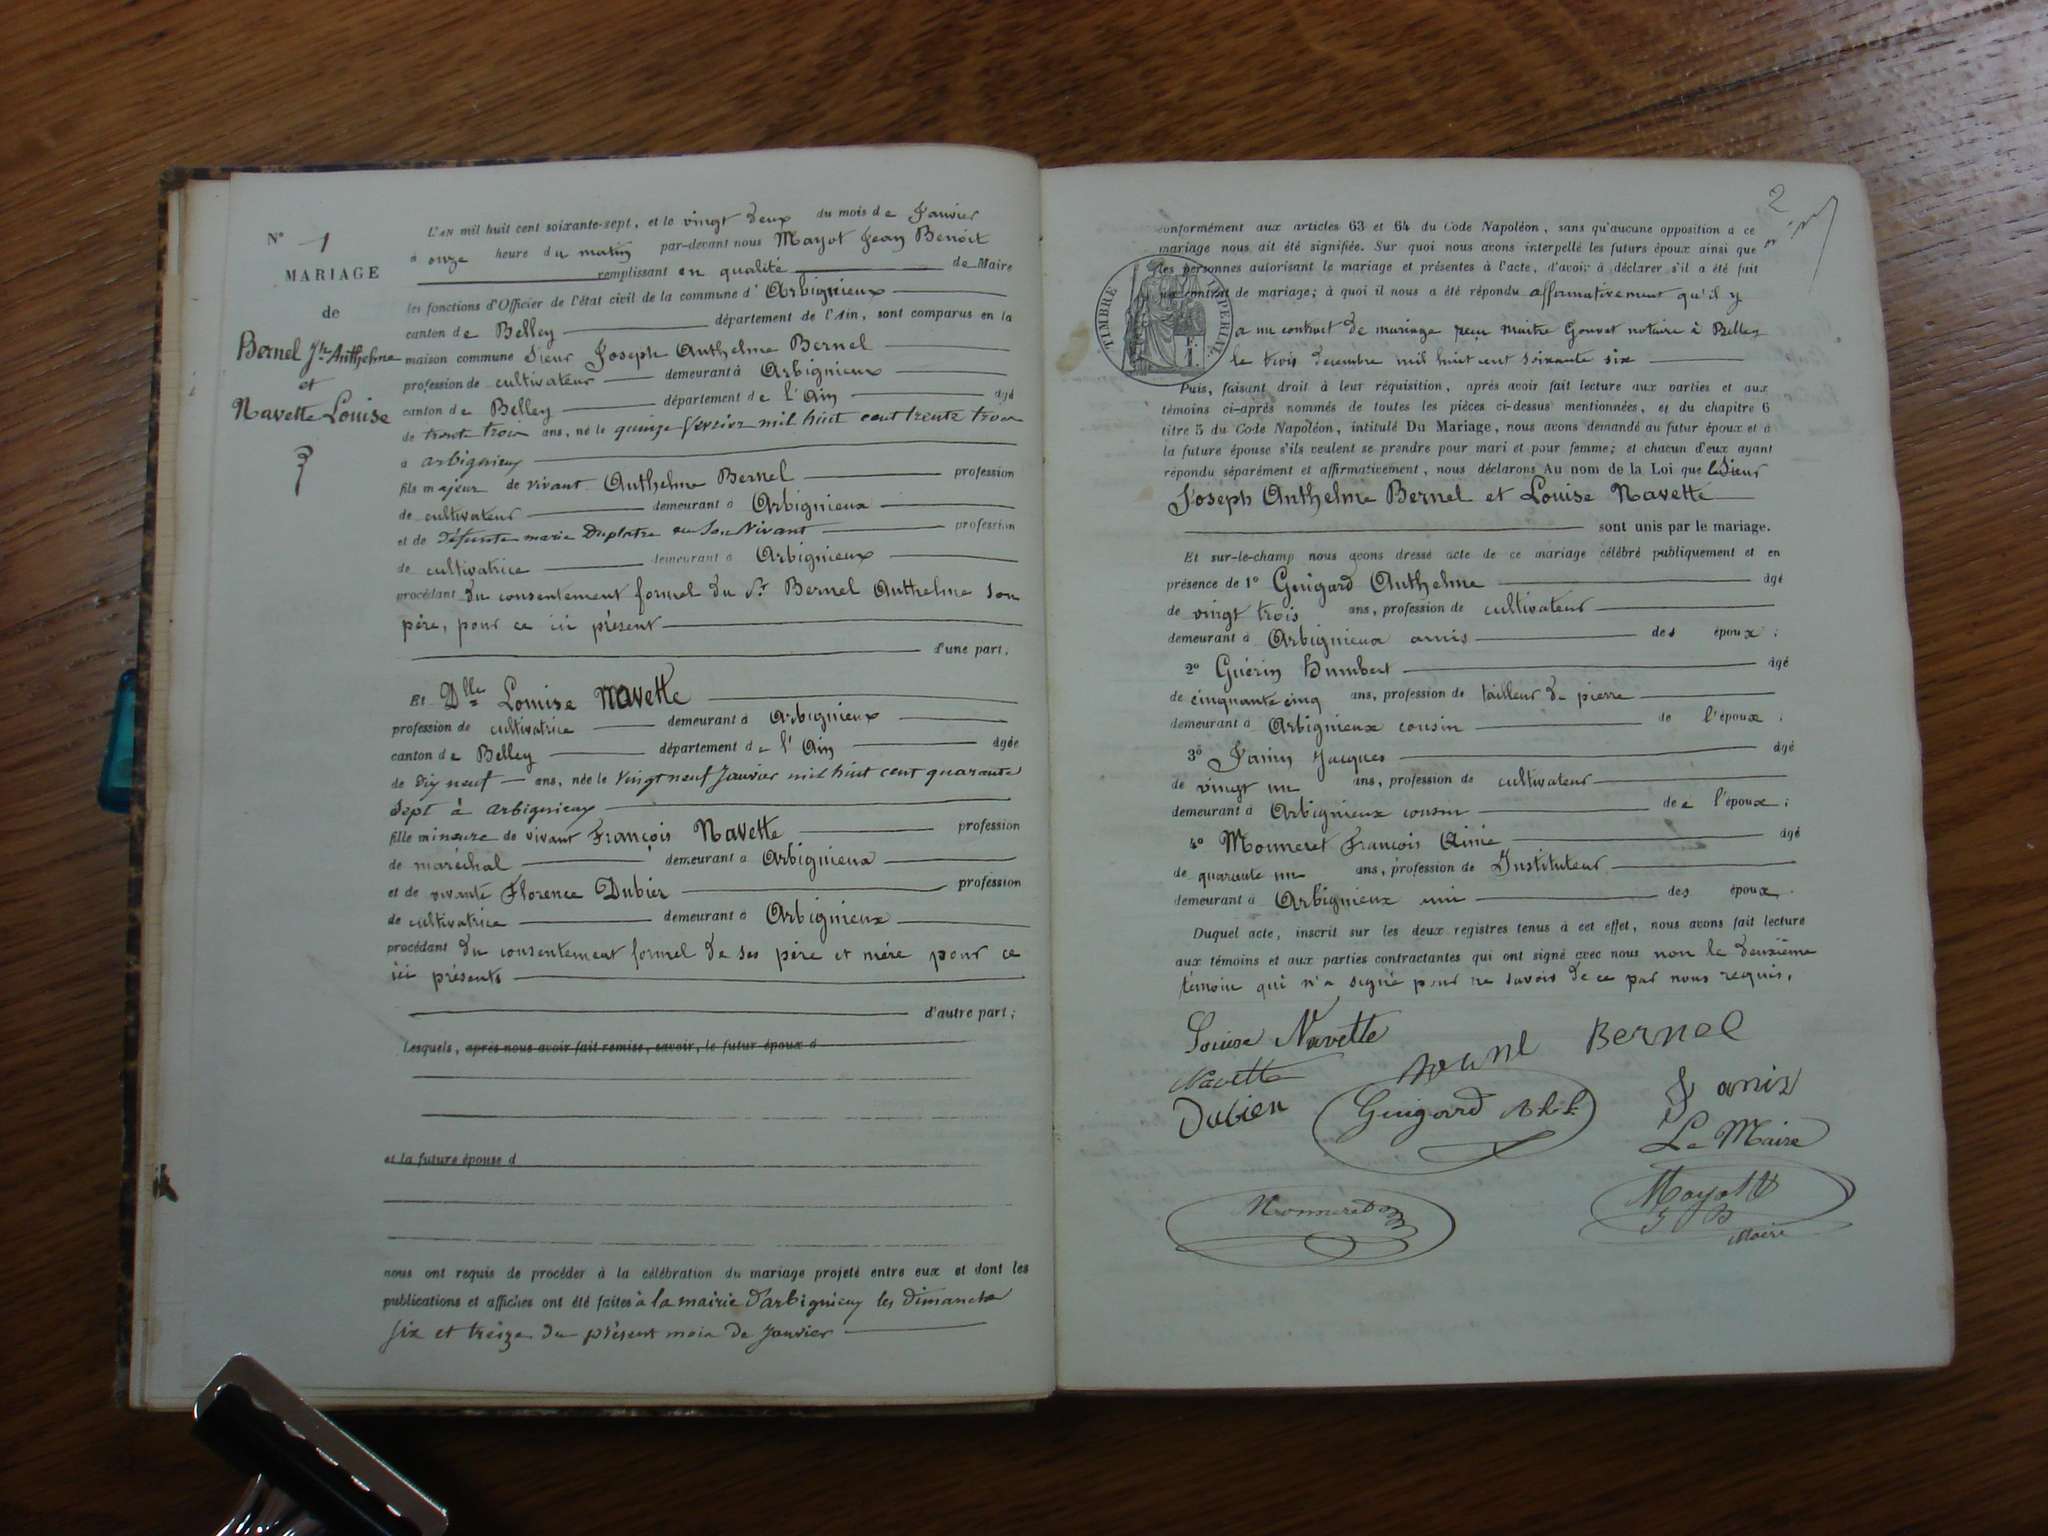 N° 1
MARIAGE
de
Bernel Jh Anthelme
et
Navette Louise
L'AN mil huit cent soixante-sept, et le vingt deux du mois de Janvier
à onze heure du matin par-devant nous Mayot Jean Benoit
remplissant en qualité de Maire
les fonctions d'Officier de l'état civil de la commune d'Arbignieux
canton de Belley département de l'Ain, sont comparus en la
maison commune Sieur Joseph Anthelme Bernel
profession de cultivateur demeurant à Arbignieux
canton de Belley département de l'Ain âgé
de trente trois ans, né le quinze février mil huit cent trente trois
à arbignieux
fils majeur de vivant Anthelme Bernel profession
de cultivateur demeurant à Arbignieux
et de défunte marie Duplatre en Son Vivant profession
de cultivatrice demeurant à Arbignieux
procédant du consentement formel du Sr Bernel Anthelme son
père, pour ce ici présent
d'une part.
Et Dlle Louise Navette
profession de cultivatrice demeurant à Arbignieux
canton de Belley département de l'Ain âgée
de dix neuf ans, née le vingt neuf Janvier mil huit cent quarante
Sept à arbignieux
fille mineure de vivant François Navette profession
de maréchal demeurant à Arbignieux
et de vivante Florence Dubier profession
de cultivatrice demeurant à Arbignieux
procédant du consentement formel de ses père et mère pour ce
ici présents
d'autre part;
Lesquels, après nous avoir fait remise, savoir, le futur époux d
et la future épouse d
nous ont requis de procéder à la célébration du mariage projeté entre eux et dont les
publications et affiches ont été faites à la mairie d'arbignieux les dimanche
six et treize du présent mois de Janvier
2
conformément aux articles 63 et 64 du Code Napoléon, sans qu'aucune opposition à ce
mariage nous ait été signifiée. Sur quoi nous avons interpellé les futurs époux ainsi que
les personnes autorisant le mariage et présentes à l'acte, d'avoir à déclarer s'il a été fait
un contrat de mariage; à quoi il nous a été répondu affirmativement qu'il y
TIMBRE IMPÉRIAL
a un contract de mariage reçu maitre Gouvet notaire à Belley
le trois decembre mil huit cent soixante six
Puis, faisant droit à leur réquisition, après avoir fait lecture aux parties et aux
témoins ci-après nommés de toutes les pièces ci-dessus mentionnées, et du chapitre 6
titre 5 du Code Napoléon, intitulé Du Mariage, nous avons demandé au futur époux et à
la future épouse s'ils veulent se prendre pour mari et pour femme; et chacun d'eux ayant
répondu séparément et affirmativement, nous déclarons Au nom de la Loi que le Sieur
Joseph Anthelme Bernel et Louise Navette
sont unis par le mariage.
Et sur-le-champ nous avons dressé acte de ce mariage célébré publiquement et en
présence de 1° Guigard Anthelme âgé
de vingt trois ans, profession de cultivateur
demeurant à Arbignieux amis des époux;
2° Guérin Humbert âgé
de cinquante cinq ans, profession de tailleur de pierre
demeurant à Arbignieux cousin de l'épouse;
3° Janin Jacques âgé
de vingt un ans, profession de cultivateur
demeurant à Arbignieux cousin de l'époux;
4° Monneret François Aimé âgé
de quarante un ans, profession de Instituteur
demeurant à Arbignieux ami des époux.
Duquel acte, inscrit sur les deux registres tenus à cet effet, nous avons fait lecture
aux témoins et aux parties contractantes qui ont signé avec nous non le deuxième
témoin qui n'a signé pour ne savoir de ce par nous requis.
Louise Navette
Bernel
Navette
Janin
Dubien
Guigard
Le Maire
Monneret
Mayot
J B
Maire